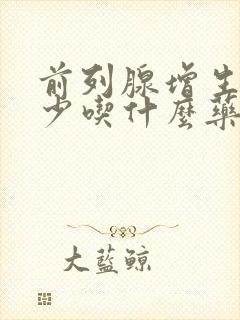 前列腺增生
少喫什麼藥
大藍鯨